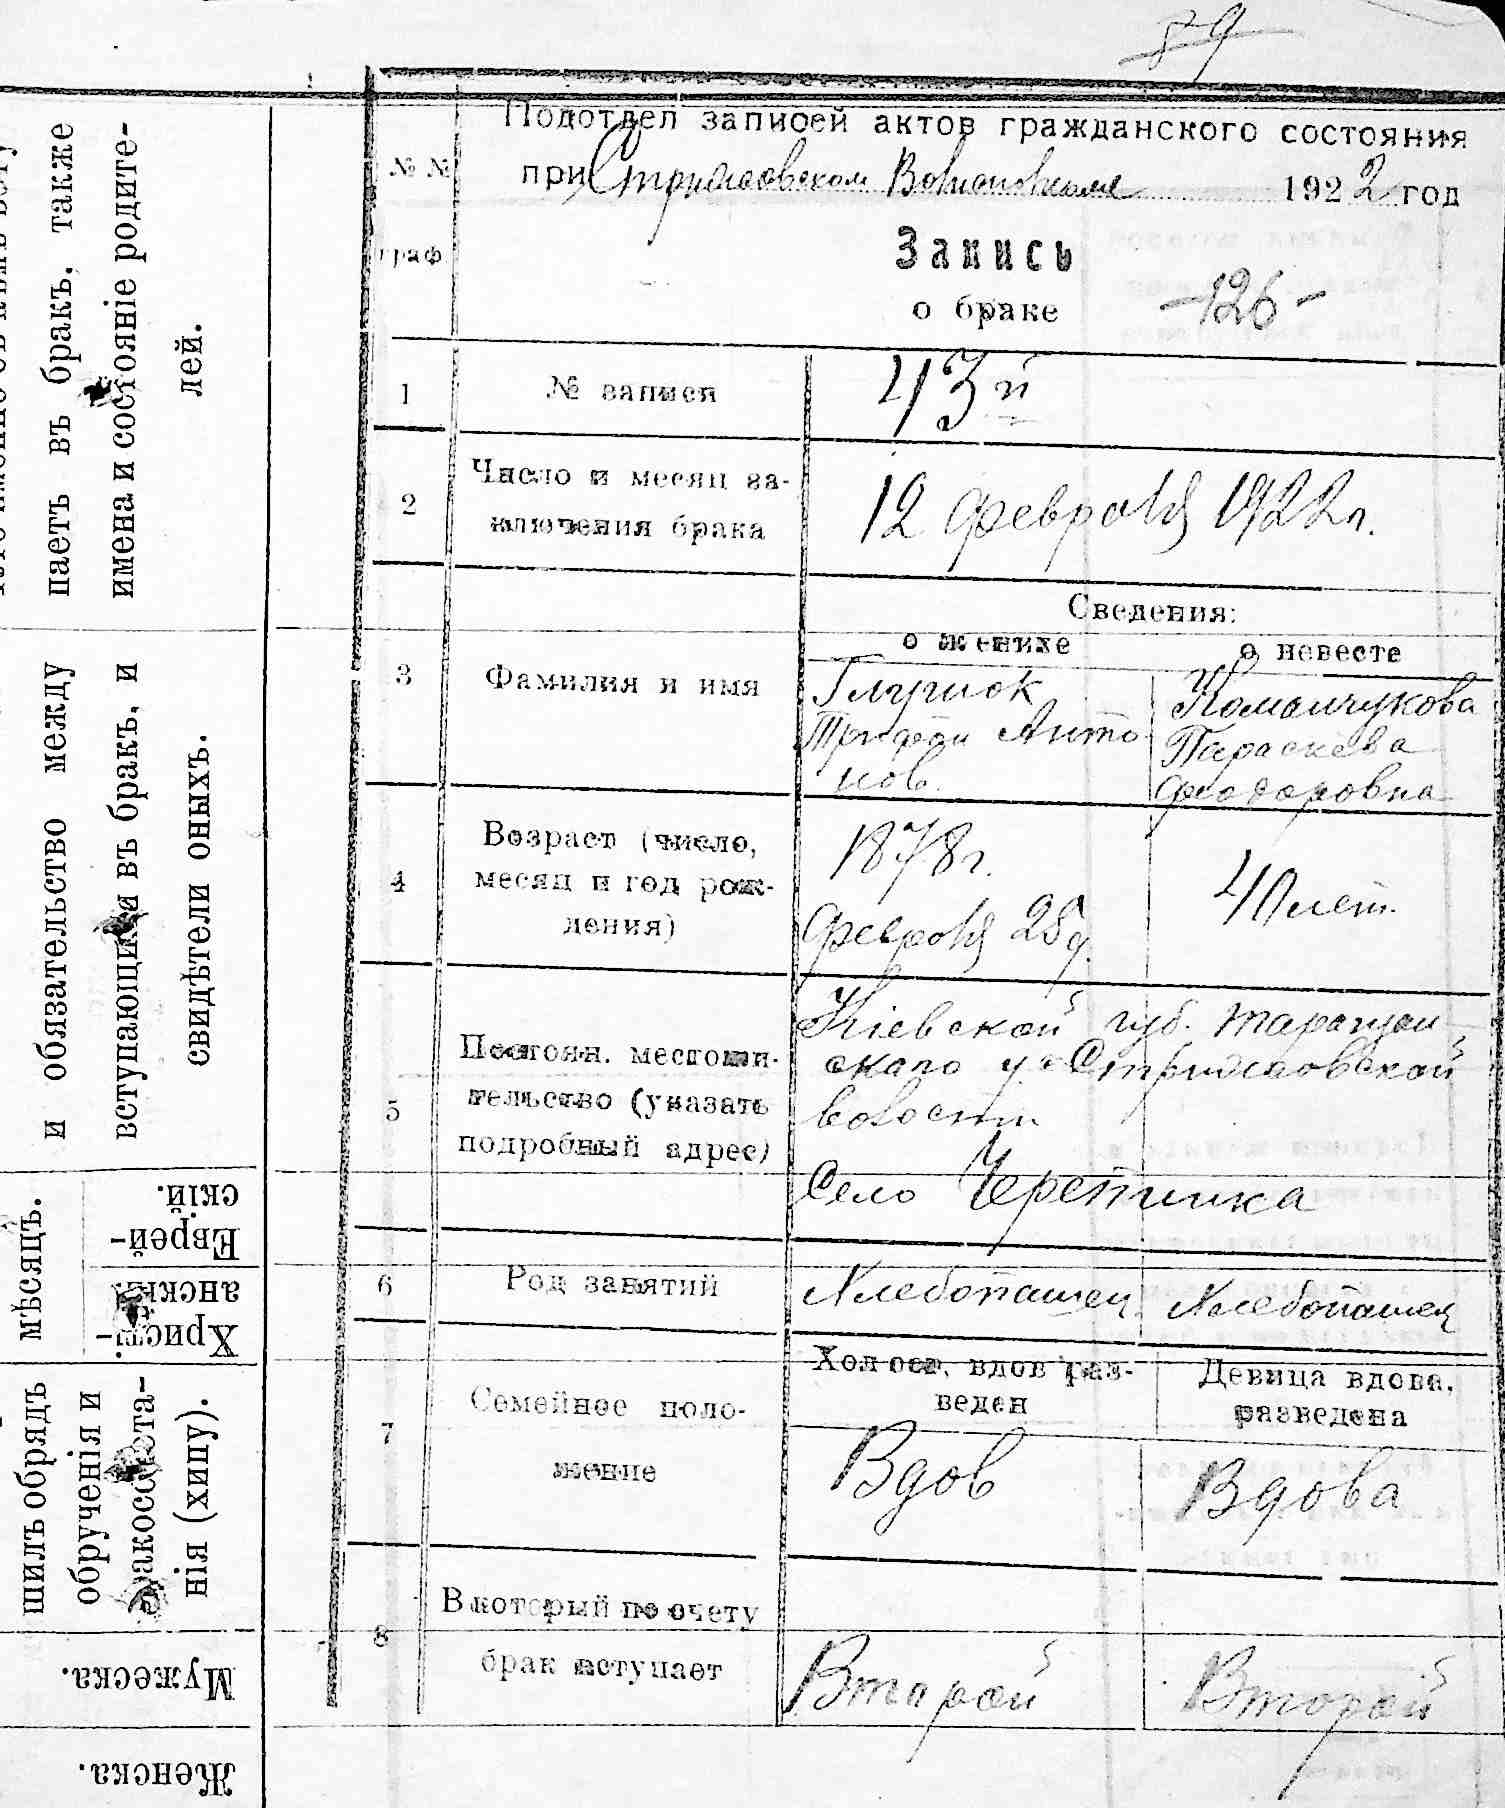 89
Подотдел записей актов гражданского состояния
№ № при Стрижавском Волисполкоме 1922 год
граф
Запись
о браке -126-
1 № записи 43й
2 Число и месяц за-
ключения брака
12 февраля 1922 г.
Сведения:
о женихе о невесте
3 Фамилия и имя
Трифон Анто
нов.
Параскева
Феодоровна
4 Возраст (число,
месяц и год рож-
дения)
1878 г.
февраля 28 д.
40 лет.
5 Постоян. местожи-
тельство (указать
подробный адрес)
Кіевской губ. Таращан
скаго у. Стрижавской
волости
Село Черепинка
6 Род занятий Хлебопашец Хлебопашец
7 Семейное поло-
жение
Холост, вдов раз-
веден
Девица вдова,
разведена
Вдов Вдова
8 В который по счету
брак вступает
Второй Второй
паетъ въ бракъ, также
имена и состояніе родите-
лей.
и обязательство между
вступающими въ бракъ, и
свидѣтели оныхъ.
мѣсяцъ.
Еврей-
скій.
Христі-
анскій.
шилъ обрядъ
обрученія и
бракосочета-
нія (хипу).
Мужеска.
Женска.